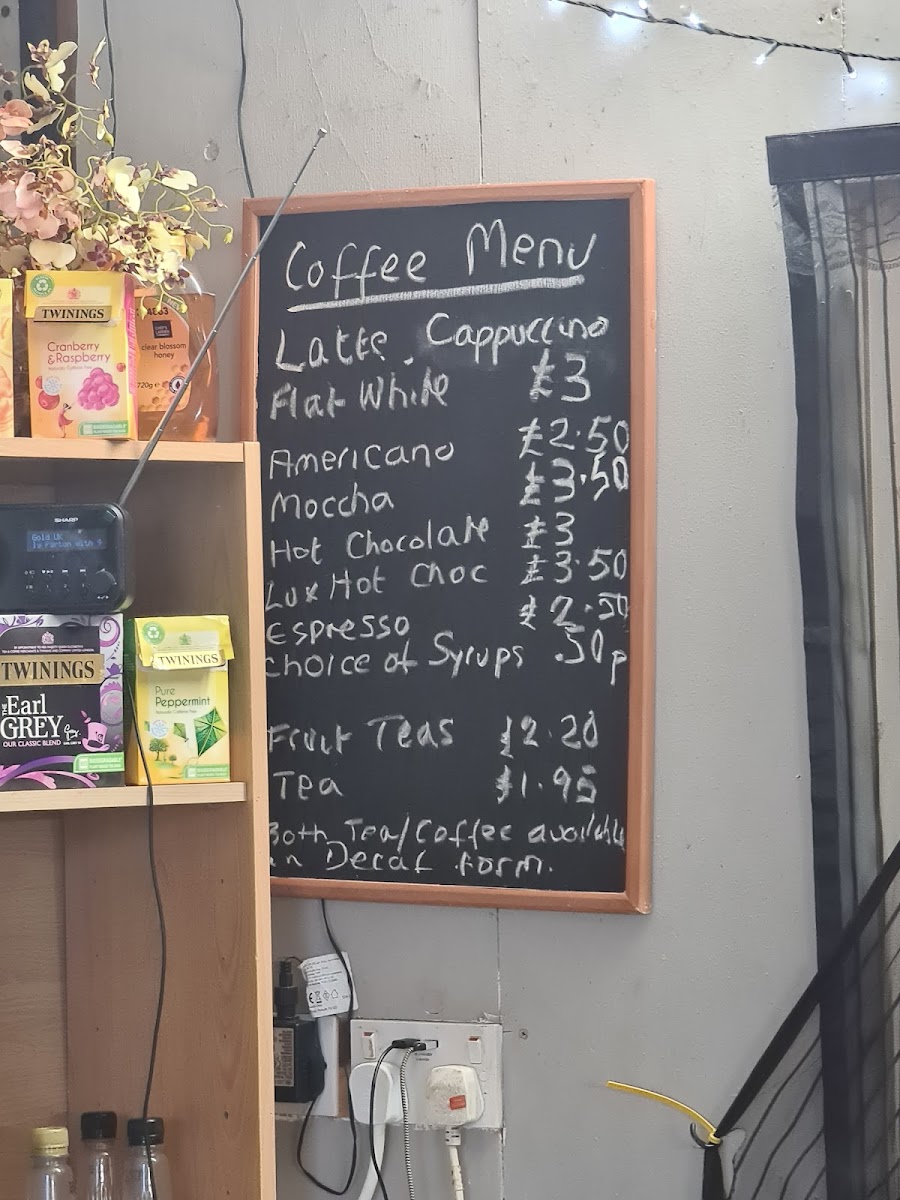 Coffee Menu
Latte. Cappuccino
Flat White £3
Americano £2.50
Moccha £3.50
Hot Chocolate £3
Lux Hot Choc £3.50
Espresso £2.50
Choice of Syrups .50p
Fruit Teas £2.20
Tea £1.95
Both Tea/Coffee available
in Decaf form.
TWININGS
Cranberry
& Raspberry
Naturally Caffeine Free
clear blossom
honey
720g e
SHARP
Gold UK
TWININGS
THE
Earl
GREY
OUR CLASSIC BLEND
TWININGS
Pure
Peppermint
Naturally Caffeine Free